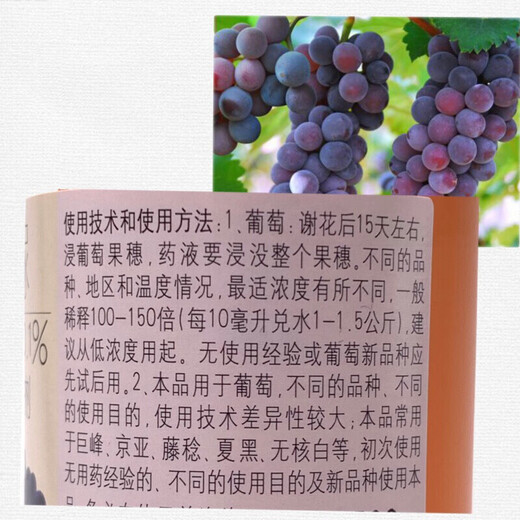 使用技术和使用方法:1、葡萄:谢花后15天左右,
浸葡萄果穗,药液要浸没整个果穗。不同的品
种、地区和温度情况,最适浓度有所不同,一般
稀释100-150倍(每10毫升兑水1-1.5公斤),建
议从低浓度用起。无使用经验或葡萄新品种应
先试后用。2、本品用于葡萄,不同的品种、不同
的使用目的,使用技术差异性较大;本品常用
于巨峰、京亚、藤稔、夏黑、无核白等,初次使用
无用药经验的、不同的使用目的及新品种使用本
1%